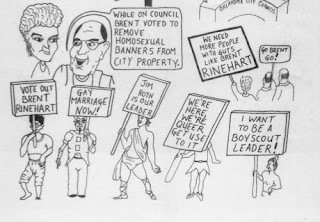 OKLAHOMA CITY COUNCIL
WHILE ON COUNCIL
BRENT VOTED TO
REMOVE
HOMOSEXUAL
BANNERS FROM
CITY PROPERTY.
WE NEED
MORE PEOPLE
WITH GUTS
LIKE BRENT
RINEHART
GO BRENT
GO!
VOTE OUT
BRENT
RINEHART
GAY
MARRIAGE
NOW!
JIM
ROTH
IS OUR
LEADER
WE'RE
HERE,
WE'RE
QUEER
GET USE
TO IT
I WANT
TO BE A
BOYSCOUT
LEADER!